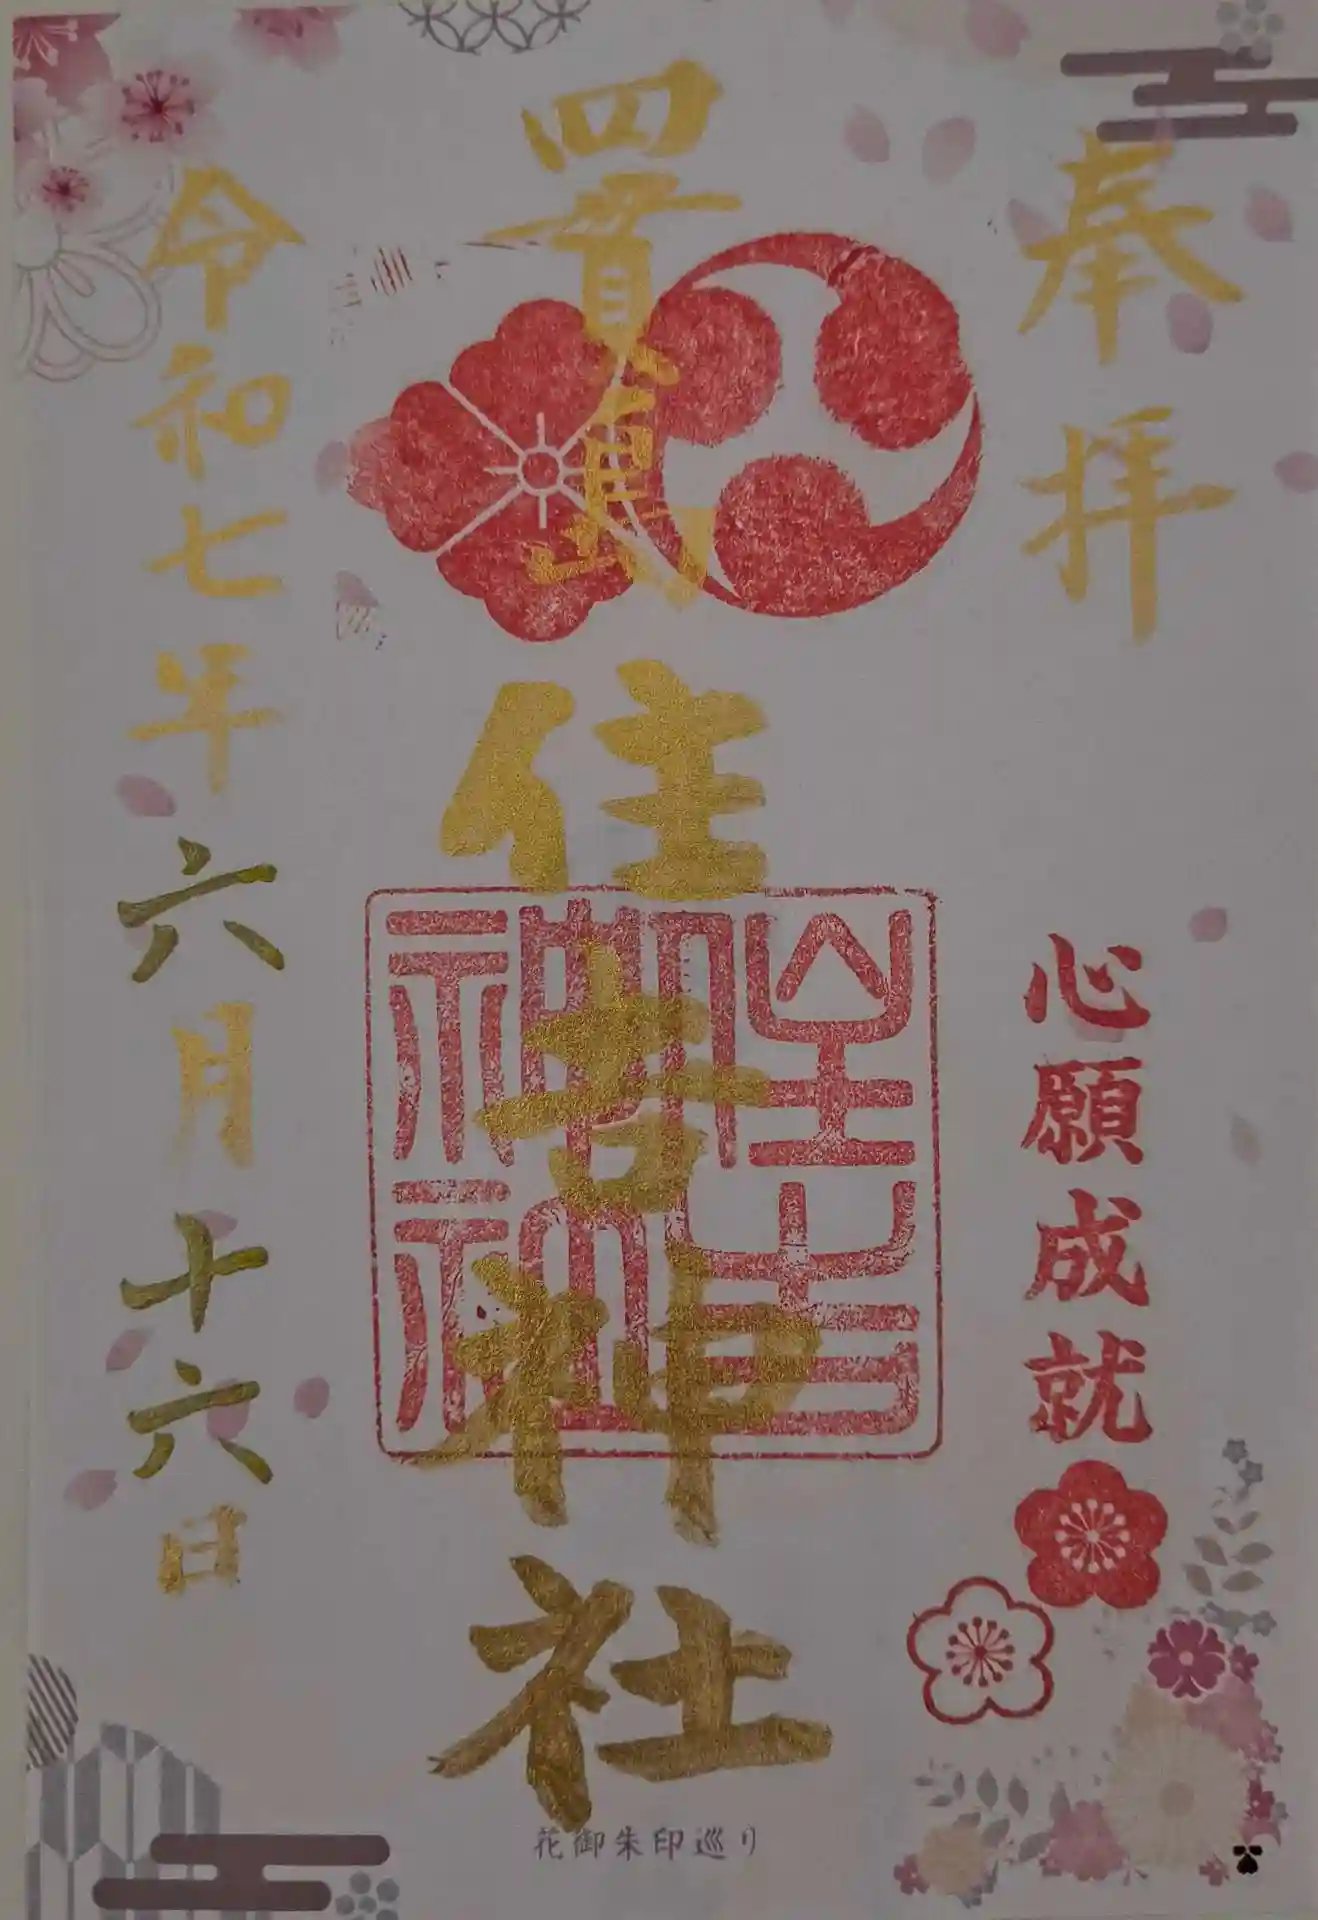 奉拝
心願成就
四貫島
住吉神社
令和七年六月十六日
花御朱印巡り